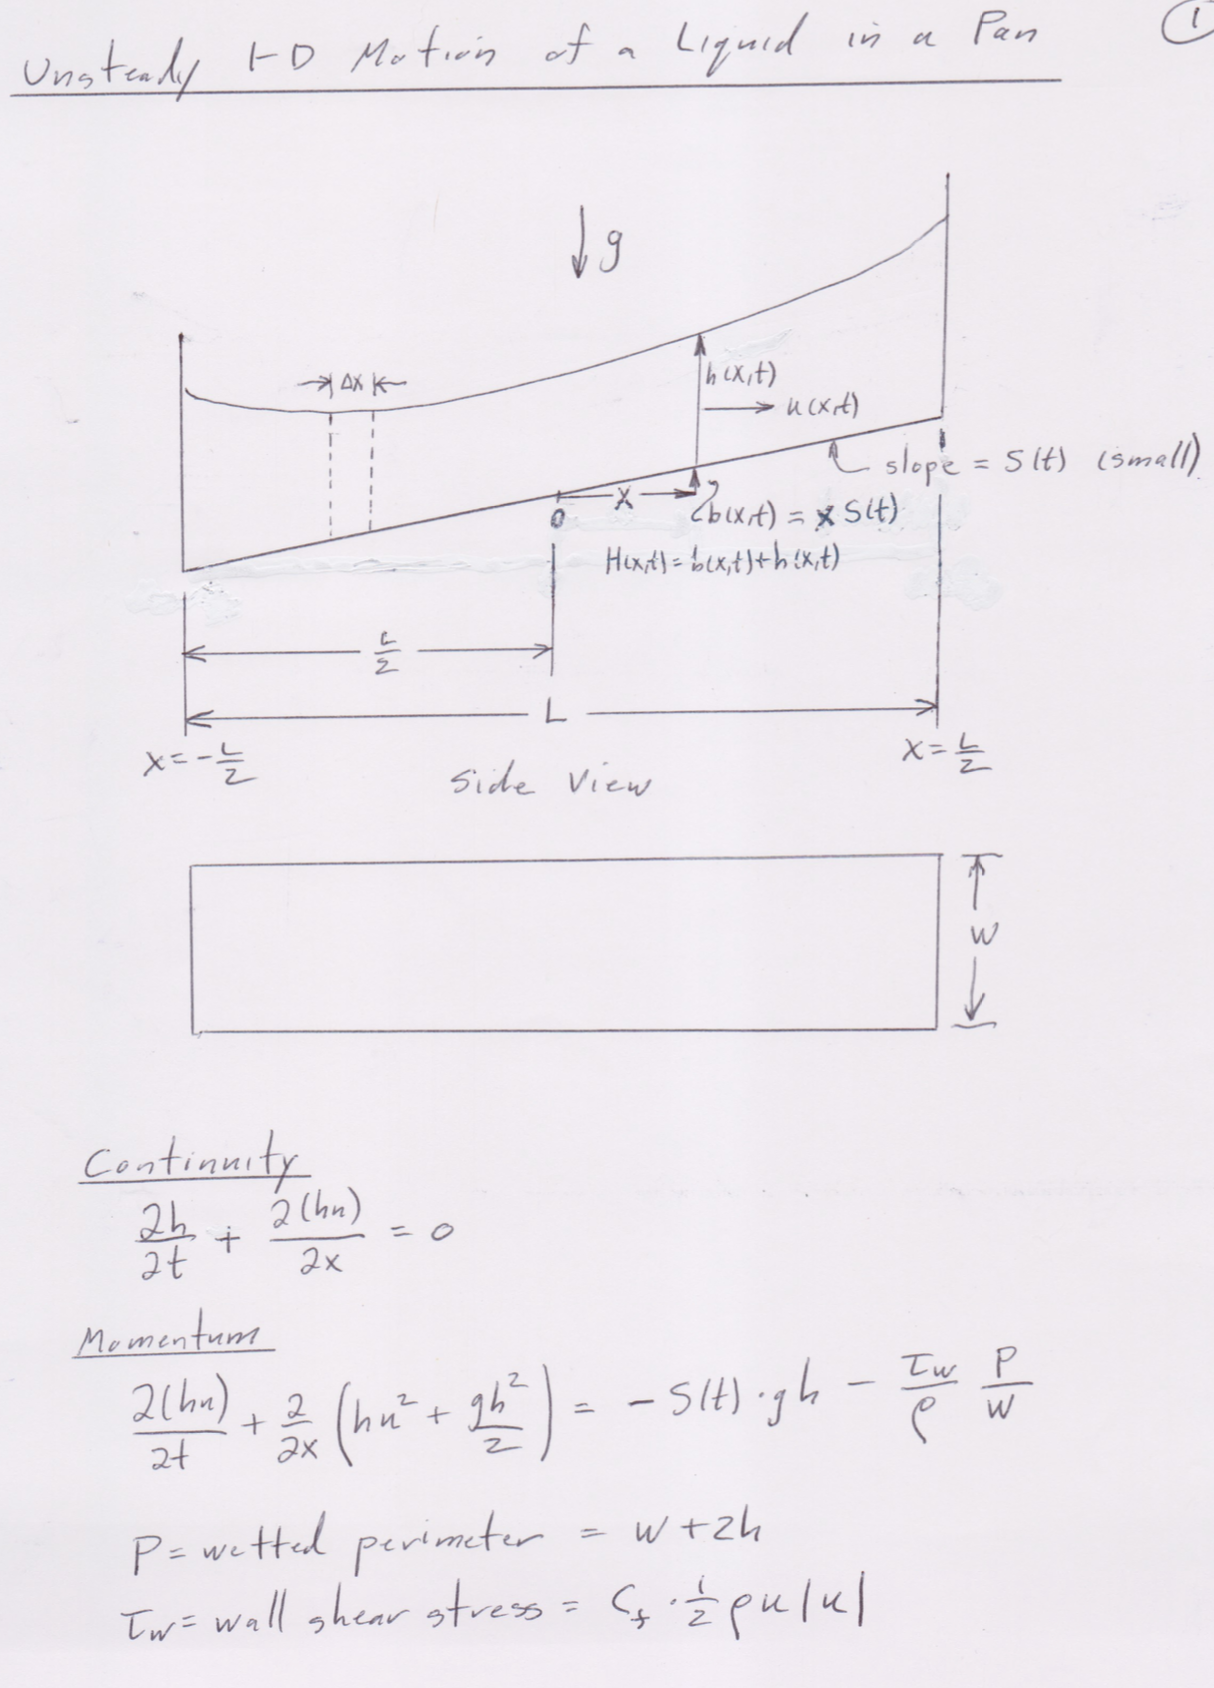 Unsteady 1-D Motion of a Liquid in a Pan
1
g
Δx
h(x,t)
u(x,t)
slope = S(t) (small)
x
0
b(x,t) = x S(t)
H(x,t) = b(x,t) + h(x,t)
L/2
L
x = -L/2
x = L/2
Side View
W
Continuity
∂h/∂t + ∂(hu)/∂x = 0
Momentum
∂(hu)/∂t + ∂/∂x (hu² + gh²/2) = - S(t) · gh - τw/ρ P/W
P = wetted perimeter = W + 2h
τw = wall shear stress = Cf · 1/2 ρ u |u|